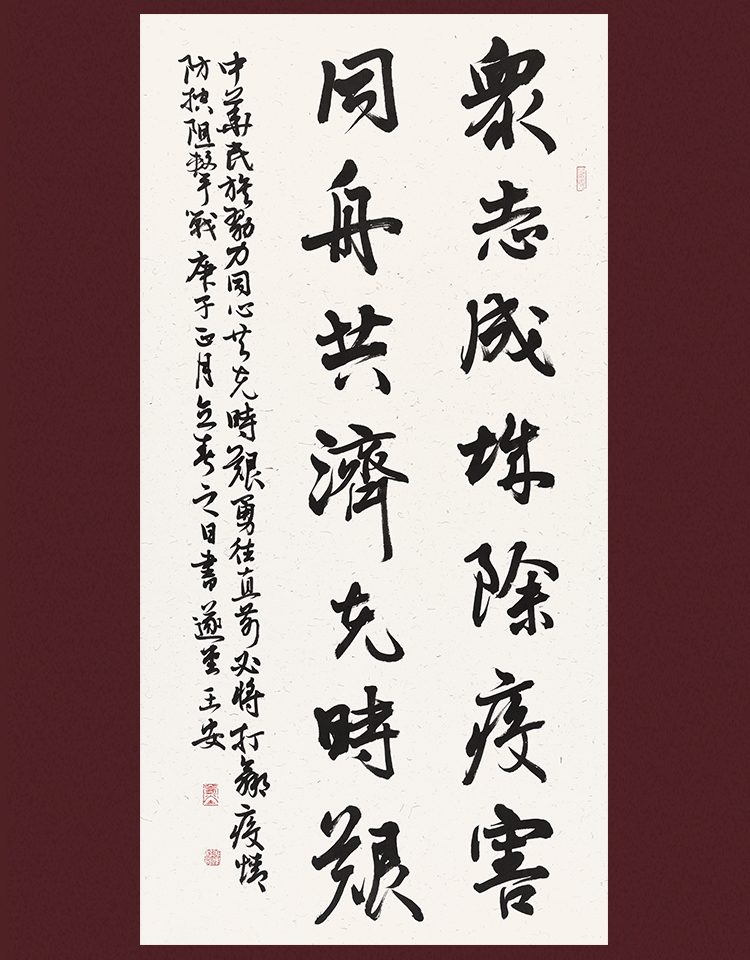 眾志成城除疫害
同舟共濟克時艱
中華民族勠力同心共克時艱勇往直前必將打贏疫情
防控阻擊戰庚子正月立春之日書遂堂王安